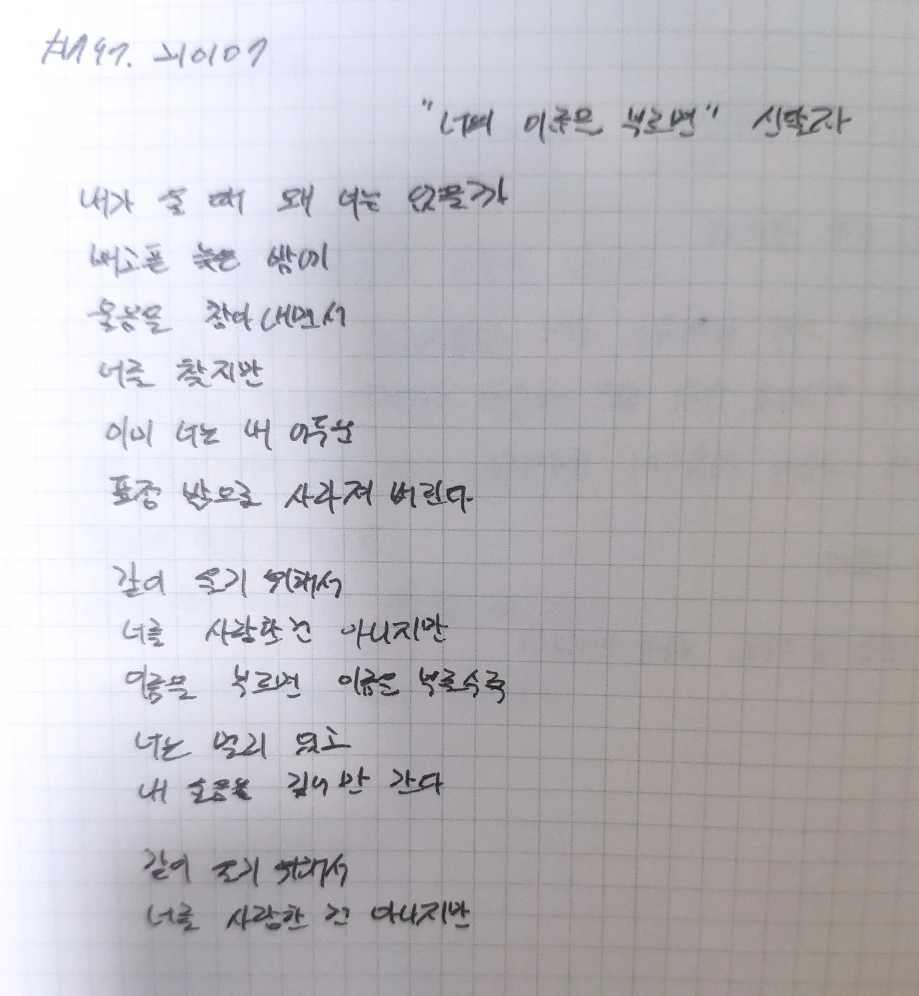 "너의 이름을 부르면" 신달자
내가 울 때 왜 너는 없을까
배고픈 늦은 밤에
울음을 참아 내면서
너를 찾지만
이미 너는 내 어두운
표정 밖으로 사라져 버린다
같이 울기 위해서
너를 사랑한 건 아니지만
이름을 부르면 이름을 부를수록
너는 멀리 있고
내 울음은 깊어만 간다
같이 울기 위해서
너를 사랑한 건 아니지만